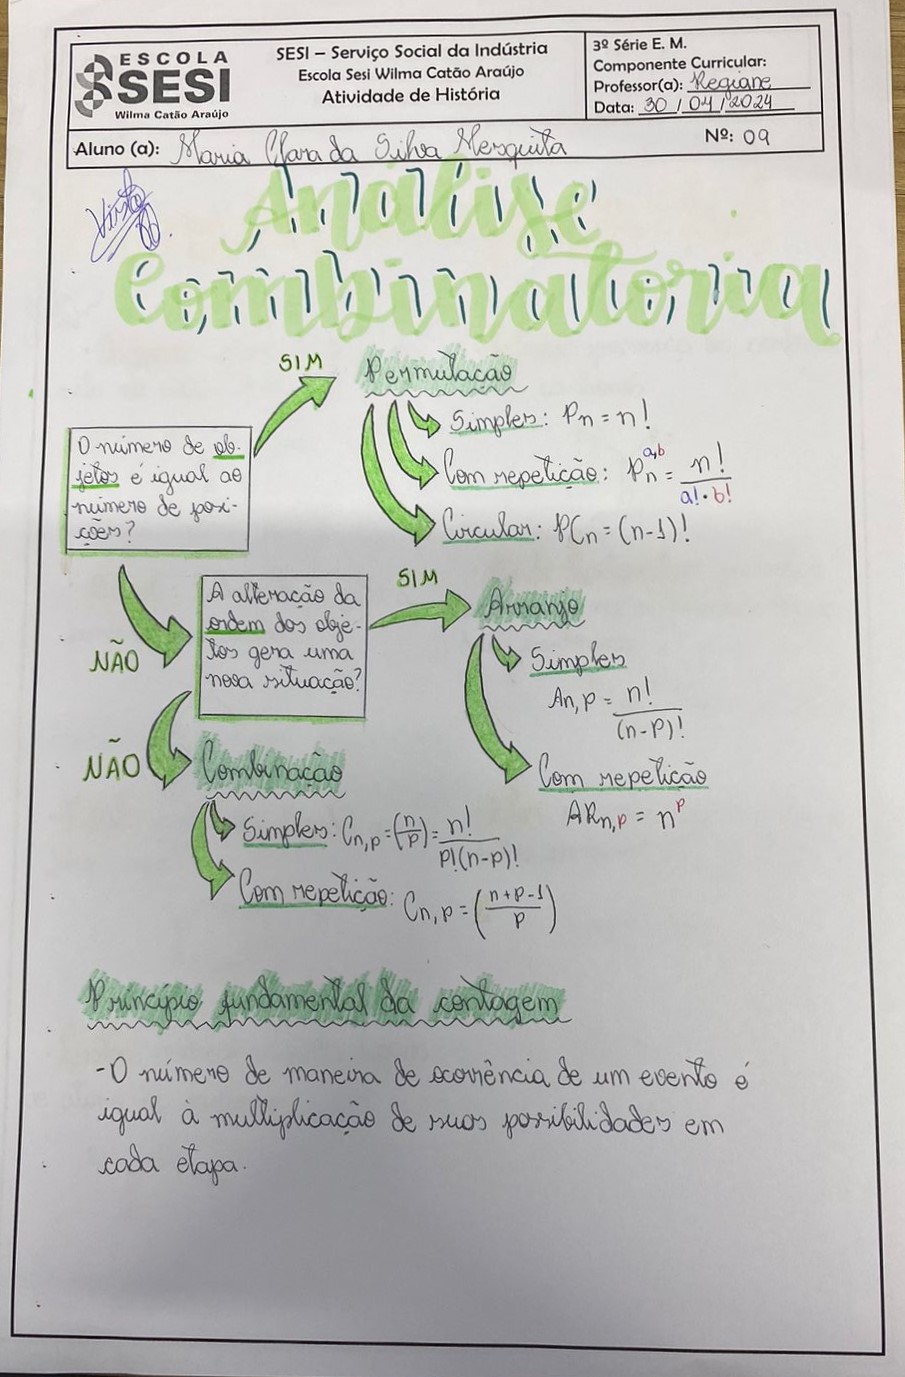 ESCOLA
SESI
Wilma Catão Araújo
SESI – Serviço Social da Indústria
Escola Sesi Wilma Catão Araújo
Atividade de História
3º Série E. M.
Componente Curricular:
Professor(a): Regiane
Data: 30 / 04 / 2024
Aluno (a): Maria Clara da Silva Mesquita
Nº: 09
Visto
Análise
Combinatoria
SIM
Permutação
Simples: Pn = n!
Com repetição: Pn^a,b = n! / a! · b!
Circular: PCn = (n-1)!
O número de ob-
jetos é igual ao
número de posi-
ções?
NÃO
A alteração da
ordem dos obje-
tos gera uma
nova situação?
SIM
Arranjo
Simples
An,p = n! / (n-p)!
Com repetição
ARn,p = n^p
NÃO
Combinação
Simples: Cn,p = (n/p) = n! / p!(n-p)!
Com repetição: Cn,p = (n+p-1 / p)
Princípio fundamental da contagem
-O número de maneira de ocorrência de um evento é
igual à multiplicação de suas possibilidades em
cada etapa.